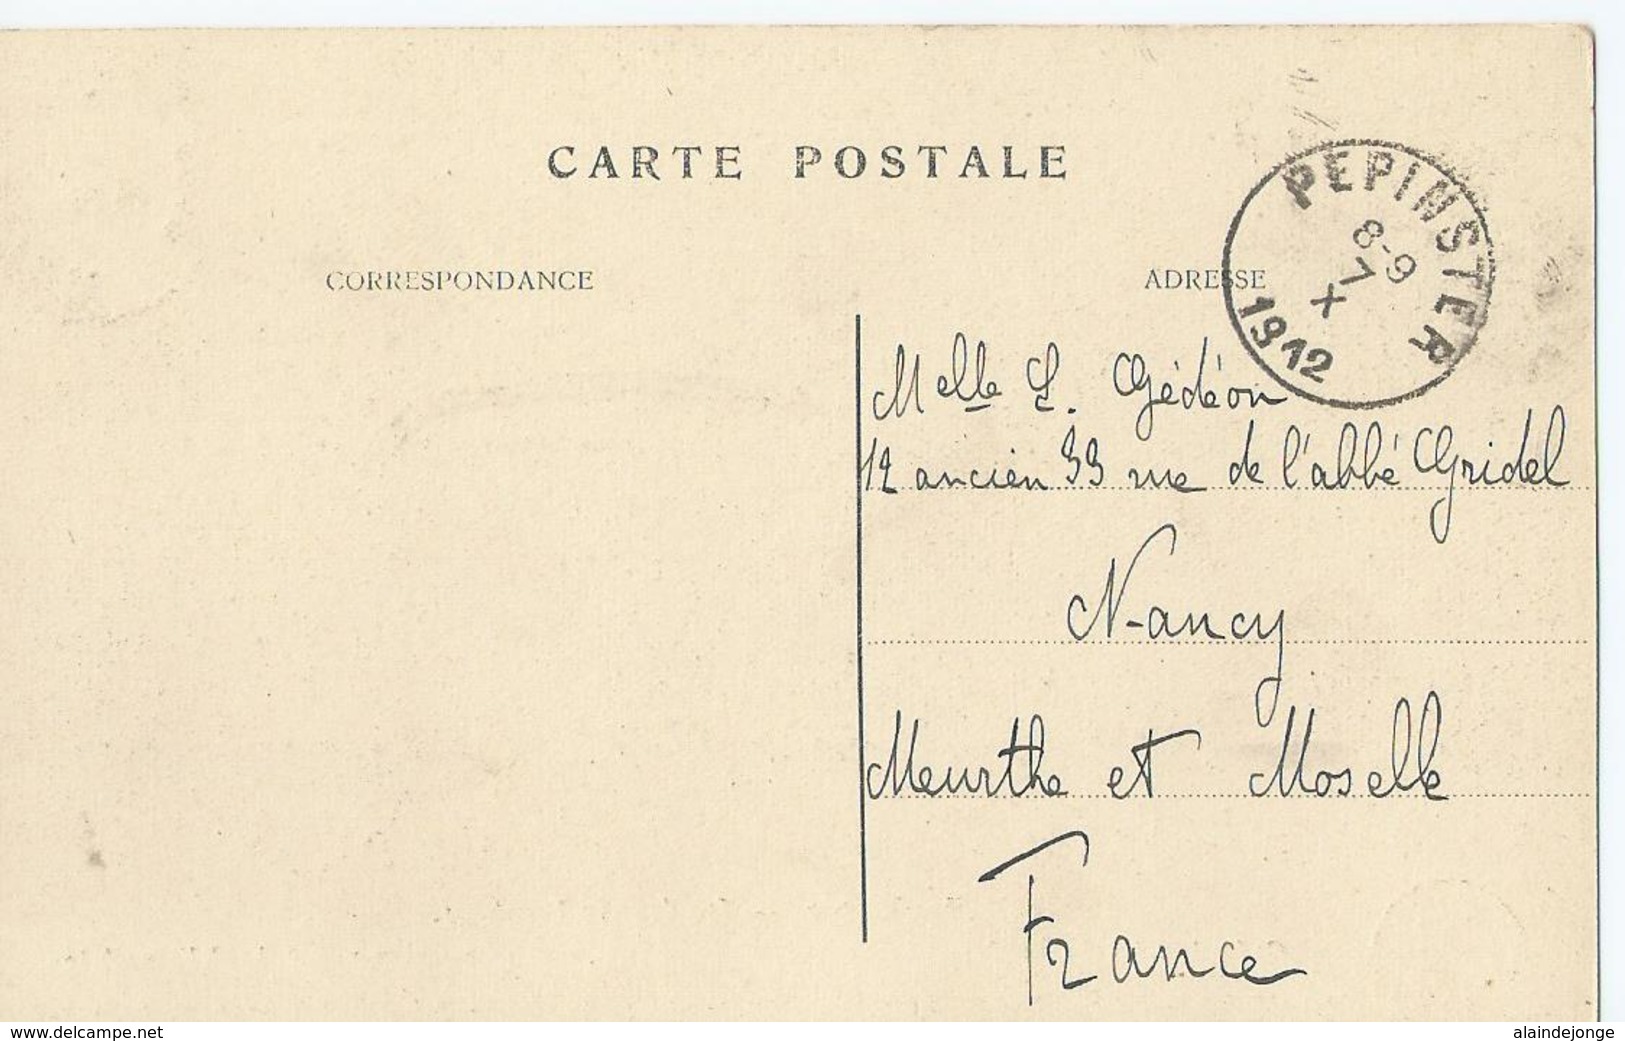 CARTE POSTALE
CORRESPONDANCE
ADRESSE
PEPINSTER
8-9
7
X
1912
Melle L. Gédéon
12 ancien 33 rue de l'abbé Gridel
Nancy
Meurthe et Moselle
France
www.delcampe.net
alaindejonge